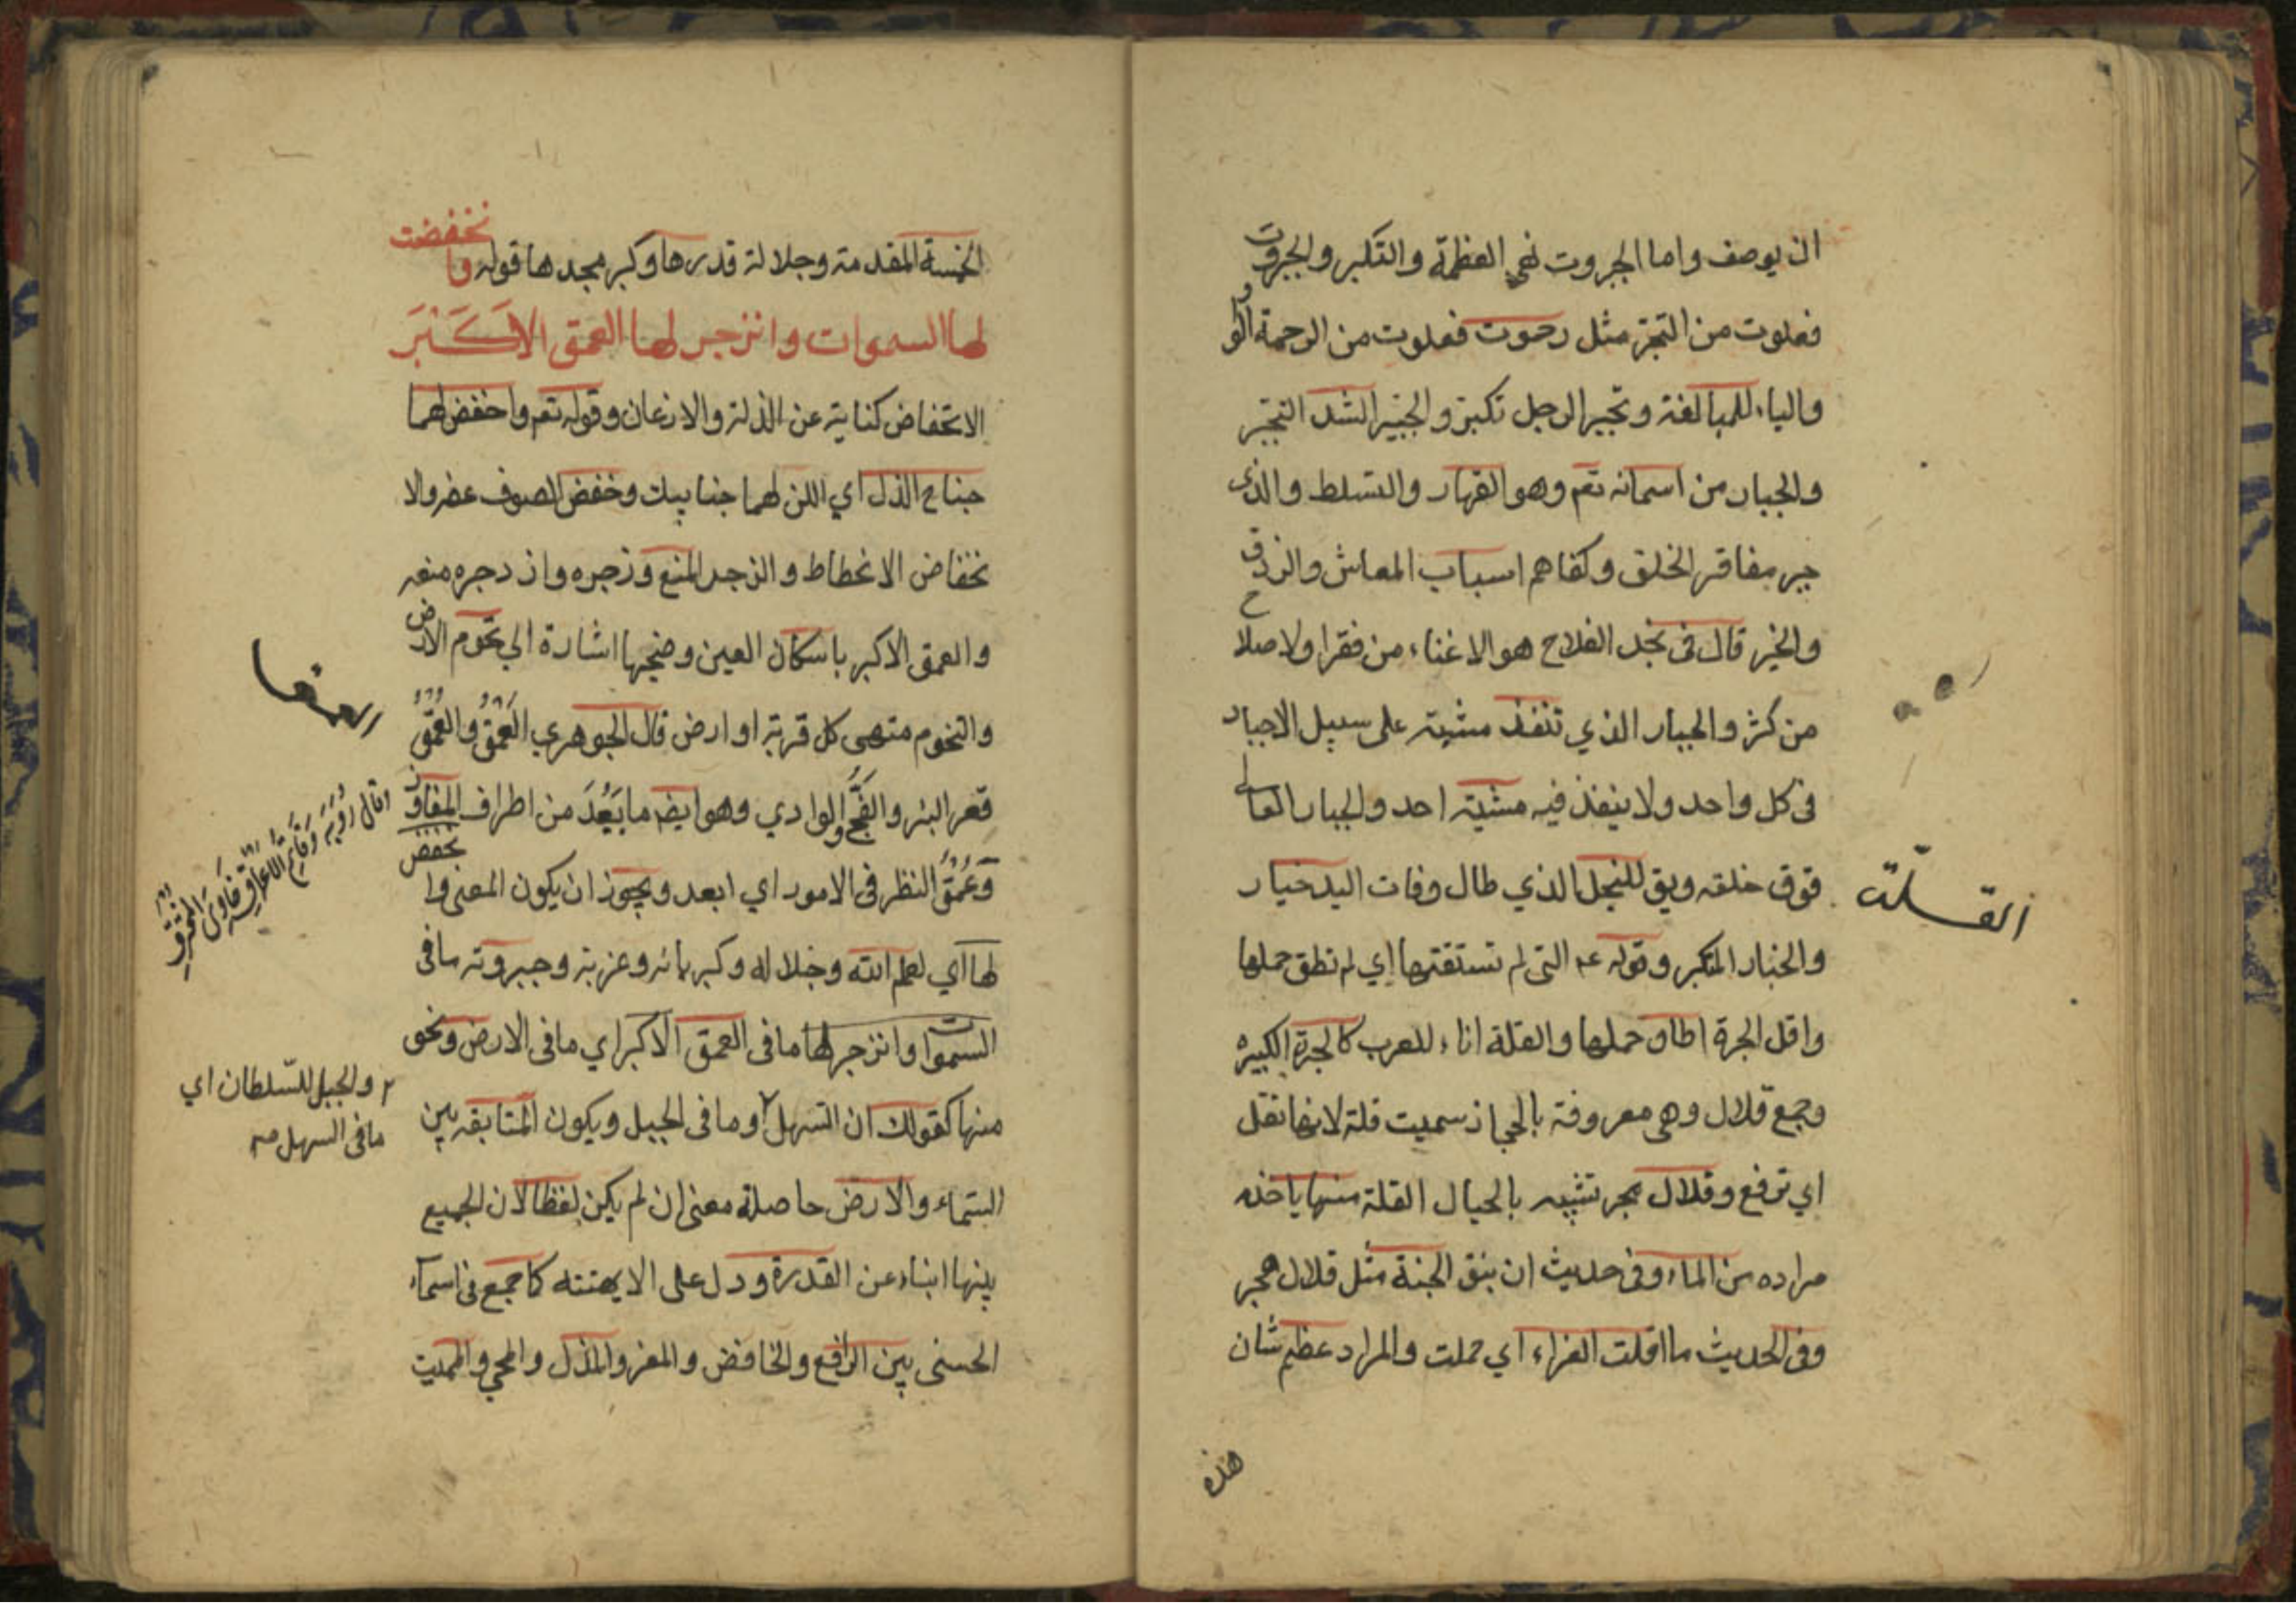 ان يوصف واما الجبروت فهي العظمة والتكبر والجبروت
فعلوت من التجبر مثل رحموت فعلوت من الرحمة الواو
والياء للمبالغة وتجبر الرجل تكبر والجبير الشد التجبر
والجبار من اسمائه تعم وهو القهار والتسلط والذي
جبر مفاقر الخلق وكفاهم اسباب المعاش والرزق
والخير قال فى نجد الفلاح هو الاغناء من فقرا ولاصلاح
من كثر والجبار الذي تنفذ مشيته على سبيل الاجبار
فى كل واحد ولا ينفذ فيه مشية احد والجبار العالي
فوق خلقه ويق للنخل الذي طال وفات اليد خيار
والجبار المتكبر وقوله عم التى لم تستقلها اي لم تطق حملها
واقل الجرة اطاق حملها والقلة اناء للعرب كالجرة الكبيرة
وجمع قلال وهى معروفة بالحجاز سميت قلة لانها تقل
اي ترفع وقلال هجر تشبيه بالحبال القلة منها ياخذه
مراده من الماء وفى حديث ان نبق الجنة مثل قلال هجر
وفى الحديث ما اقلت الغبراء اي حملت والمراد عظم شان
القلة
هذه
الخمسة المقدمة وجلالة قدرها وكبر مجدها قوله وانخفضت
لها السموات وانزجر لها العمق الاكبر
الانخفاض كناية عن الذلة والاذعان وقوله تعم واخفض لهما
جناح الذل اي اللن لهما جنابيك وخفض الصوف غضه والا
نخفاض الانحطاط والزجر المنع وزجره وازدجره منعه
والعمق الاكبر باسكان العين وضمها اشارة الى تخوم الارض
والتخوم منتهى كل قرية او ارض قال الجوهري العَمْقُ والعُمْقُ
قعر البئر والفجّ والوادي وهو ايضا ما بَعُدَ من اطراف المفاوز
وعُمْقُ النظر فى الامور اي ابعد ويجوز ان يكون المعنى وانخفض
لها اي لعلم الله وجلاله وكبريائه وعزته وجبروته ما فى
السموات وانزجر لها ما فى العمق الاكبر اي ما فى الارض ونحو
منها كقولك ان السهل ٢ وما فى الجبل ويكون المتابقه بين
السماء والارض حاصلة معنى ان لم يكن لفظا لان الجميع
بينها ابناء عن القدرة ودل على الايهتته كما جمع فى اسماء
الحسنى بين الرافع والخافض والمعز والمذل والمحي والمميت
العمق
وقال رؤبة وقاتم الاعماق خاوي المخترق
٢ والجبل للسلطان اي
ما فى السهل صم